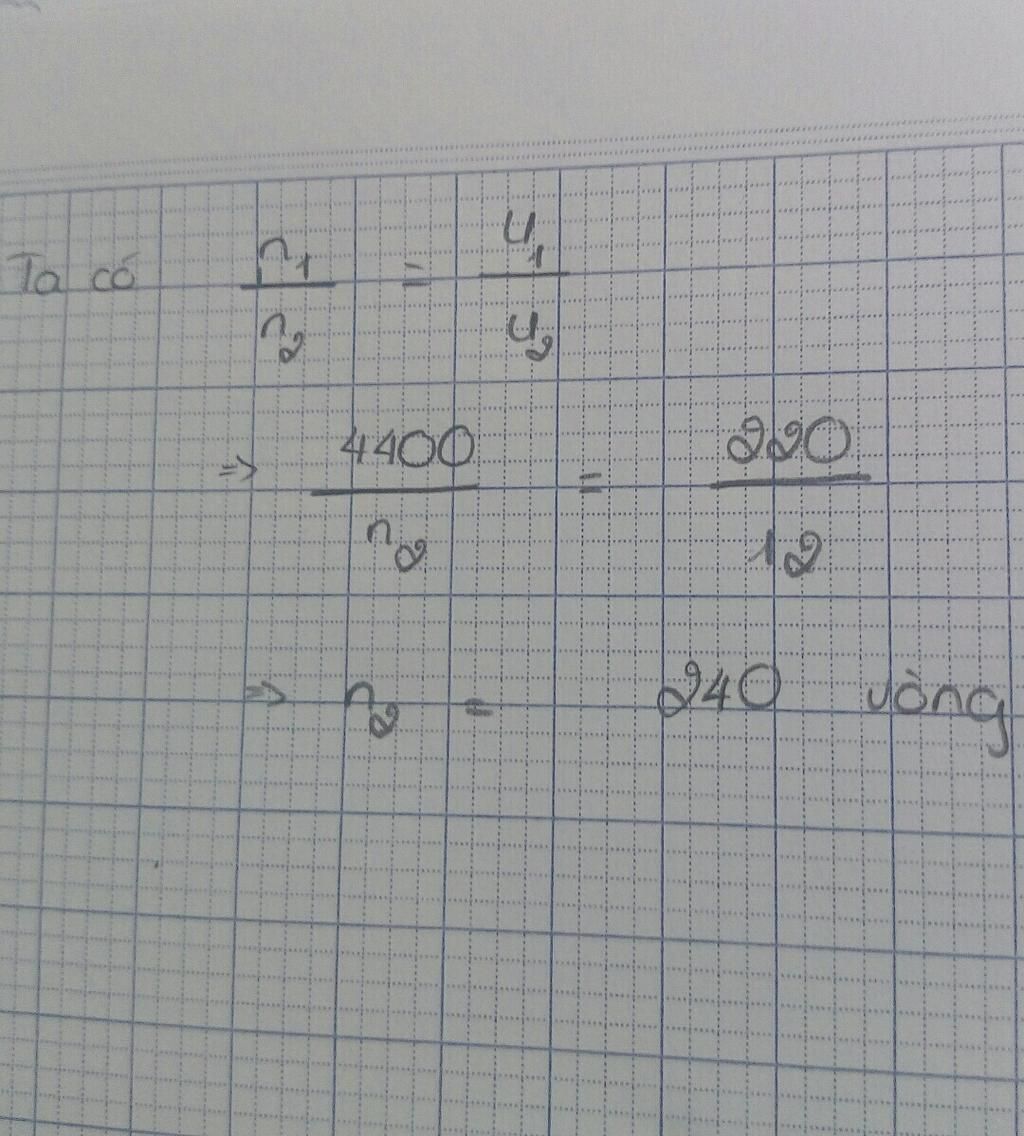 Ta có n₁/n₂ = U₁/U₂
=> 4400/n₂ = 220/12
=> n₂ = 240 vòng